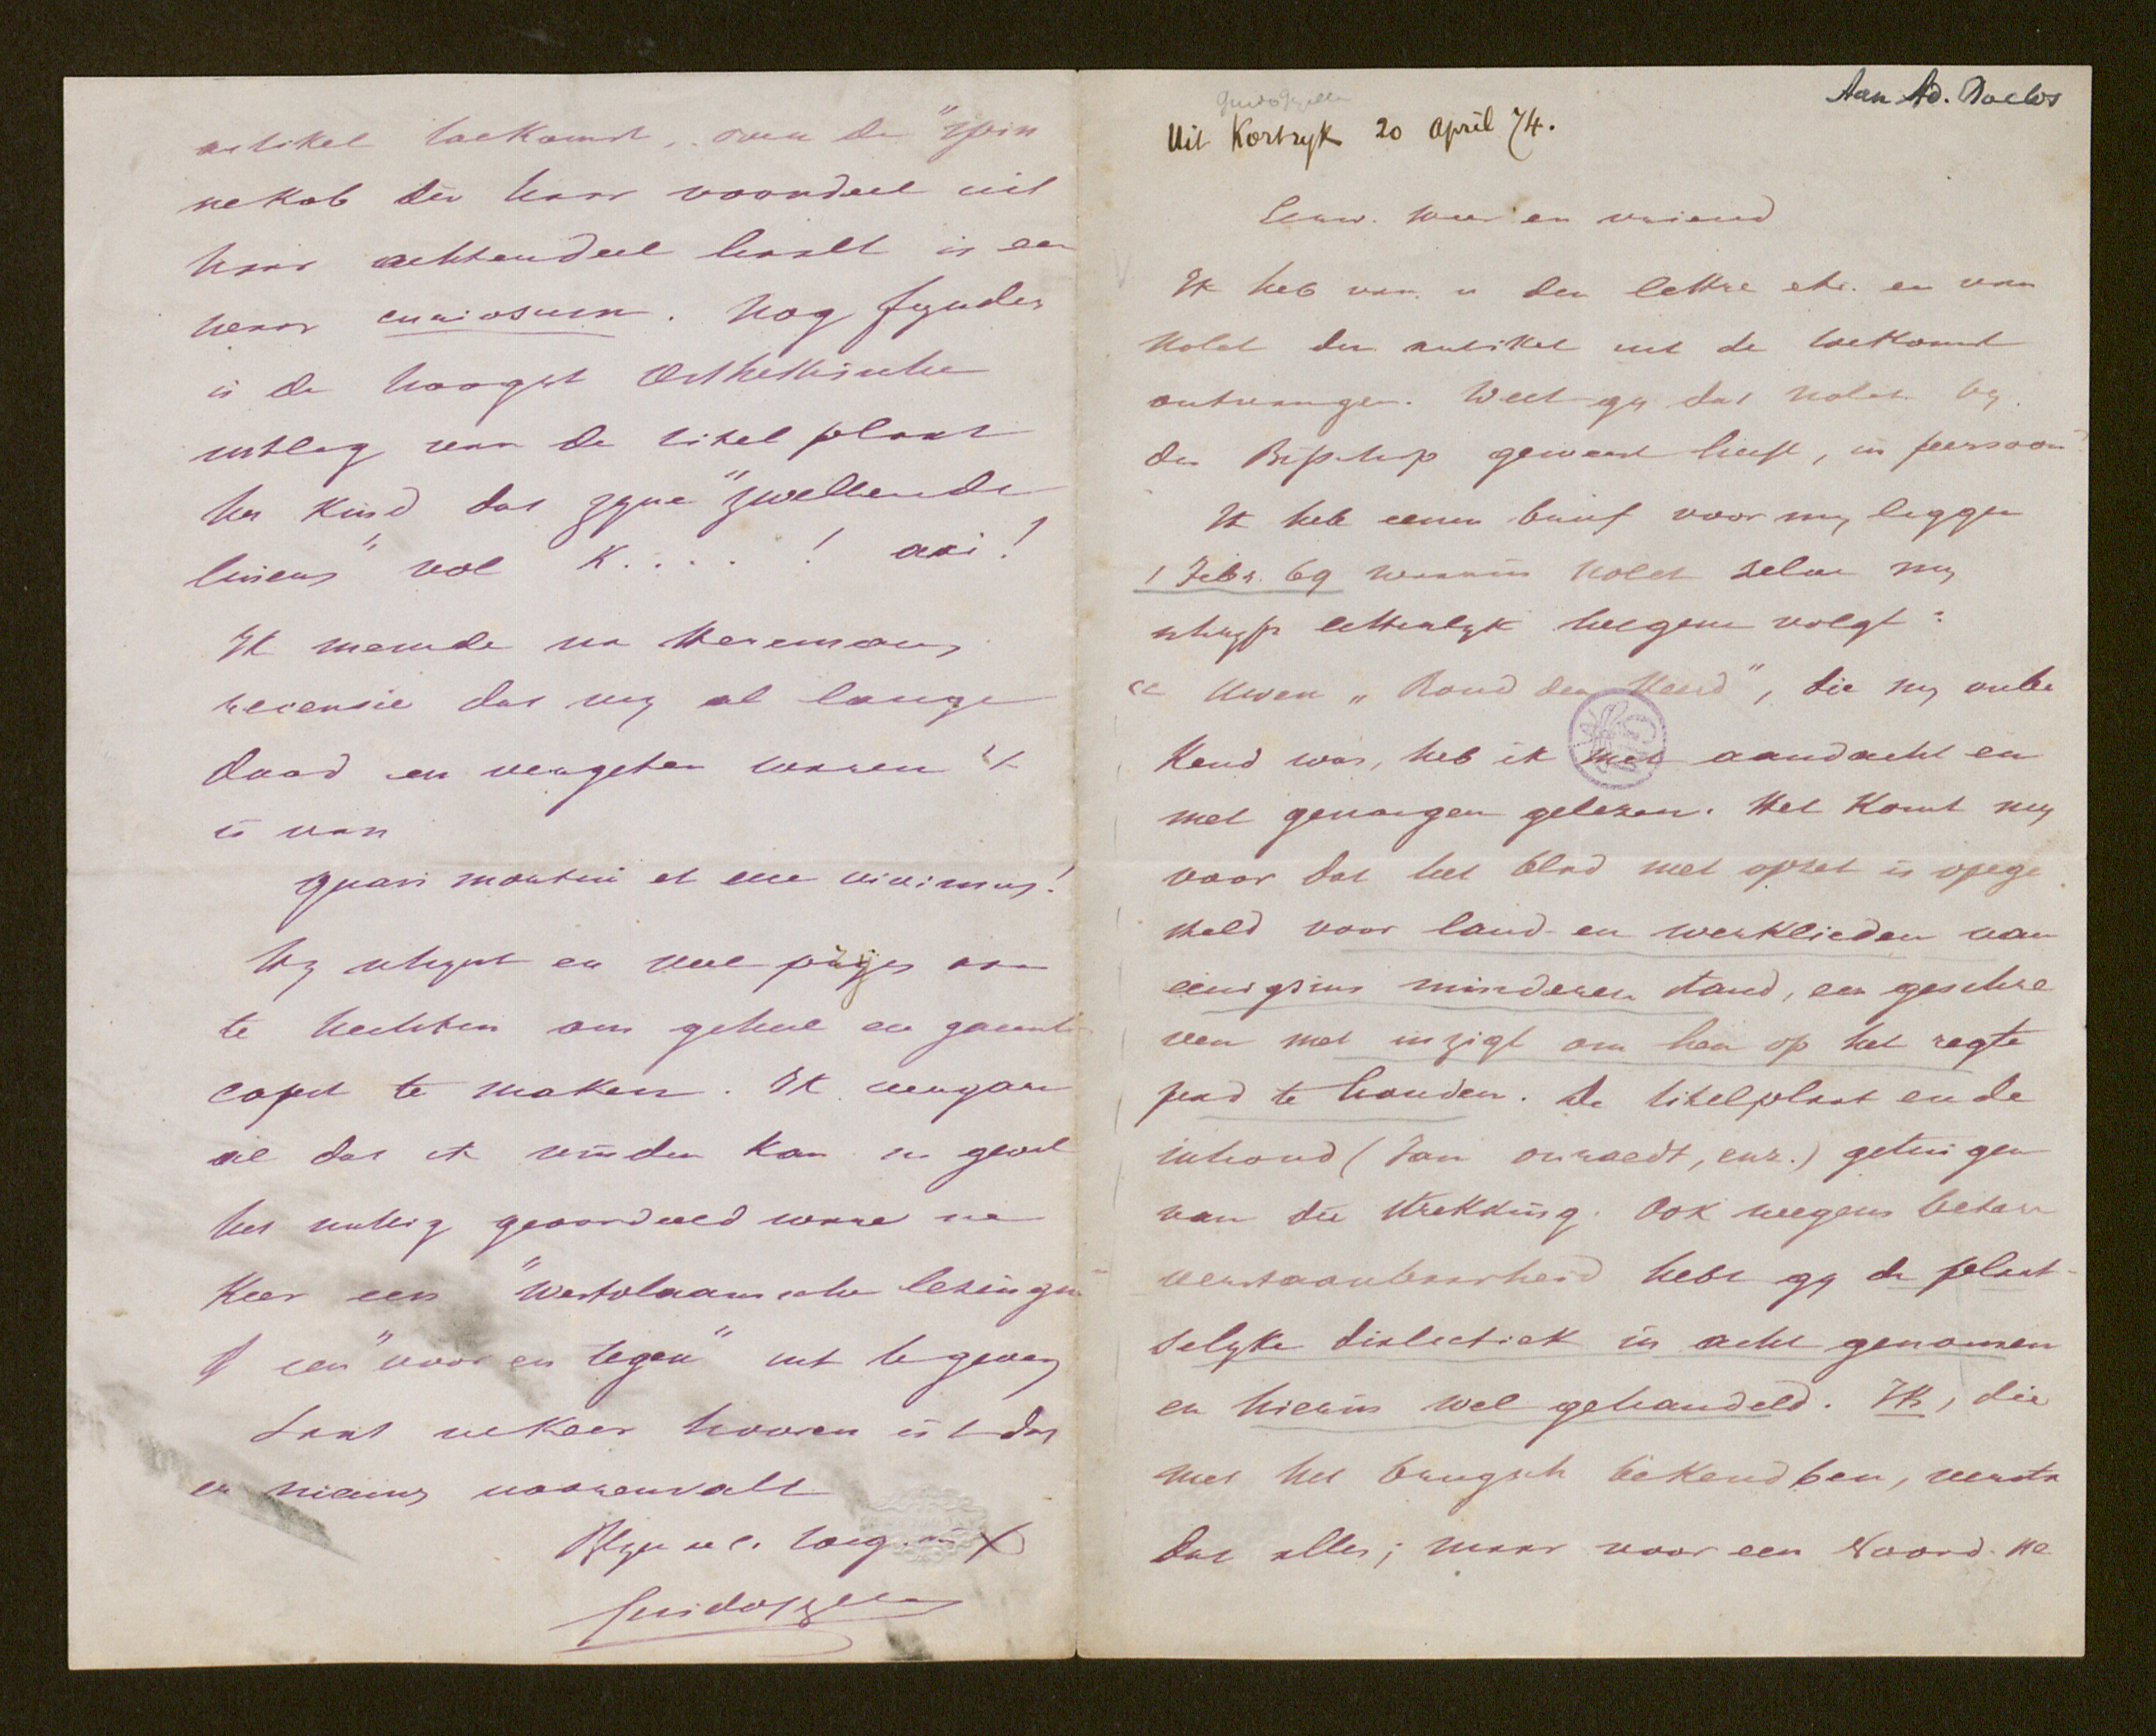 Aan Ad. Duclos
Guido Gezelle
Uit Kortryk 20 April 74.
Eerw. Heer en vriend
Ik heb van u den lettre etc. en van
Nolet den artikel uit de toekomst
ontvangen. Weet gy dat Nolet by
den Bisschop geweest heeft, in persoon
Ik heb eenen brief voor my liggen
1 Febr. 69 waarin Nolet zelve my
schryft letterlyk hetgene volgt:
"Uwen „Rond den Heerd", die my onbe
kend was, heb ik met aandacht en
met genoegen gelezen. Het komt my
voor dat het blad met opzet is opge
steld voor land- en werklieden van
eenigzins minderen stand, en geschre
ven met inzigt om hen op het regte
pad te houden. De titelplaat en de
inhoud (Jan onraedt, enz.) getuigen
van die strekking. Ook wegens betere
verstaanbaarheid hebt gy de plaat-
selyke dialectiek in acht genomen
en hierin wel gehandeld. Ik, die
met het brugsch bekend ben, versta
dat alles; maar voor een Noord-Ne
artikel toekomst, van de "spin
nekob die haar voordeel uit
haar achterdeel haalt is een
waar curiosum. Nog fynder
is de hoogst Aesthetische
uitleg van de titel plaat
het kind dat zyne "zwellende
luiers" vol k....! aai!
Ik meende na Heremans
recensie dat wy al lange
dood en vergeten waren 't
is van
quasi mortui et ecce vivimus!
Hy schynt er veel prijs aan
te hechten om geheel en gansch
capot te maken. Ik vergare
al dat ik vinden kan in geval
het nuttig geoordeeld ware ne
keer een "Westvlaamsche lezingen
of een "voor en tegen" uit te geven
Laat ne keer hooren is 't dat
er nieuws voorenvalt
Blyve u. e. toeg. in X
Guido Gezelle